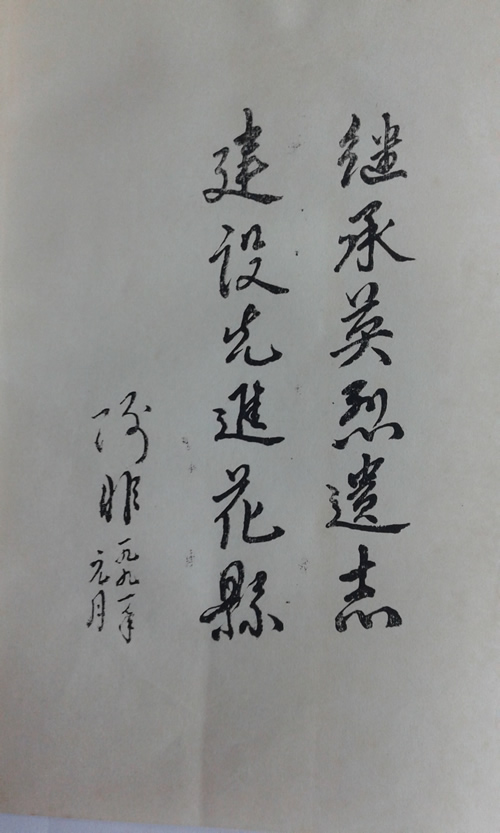 继承英烈遗志
建设先進花縣
一九九一年
元月